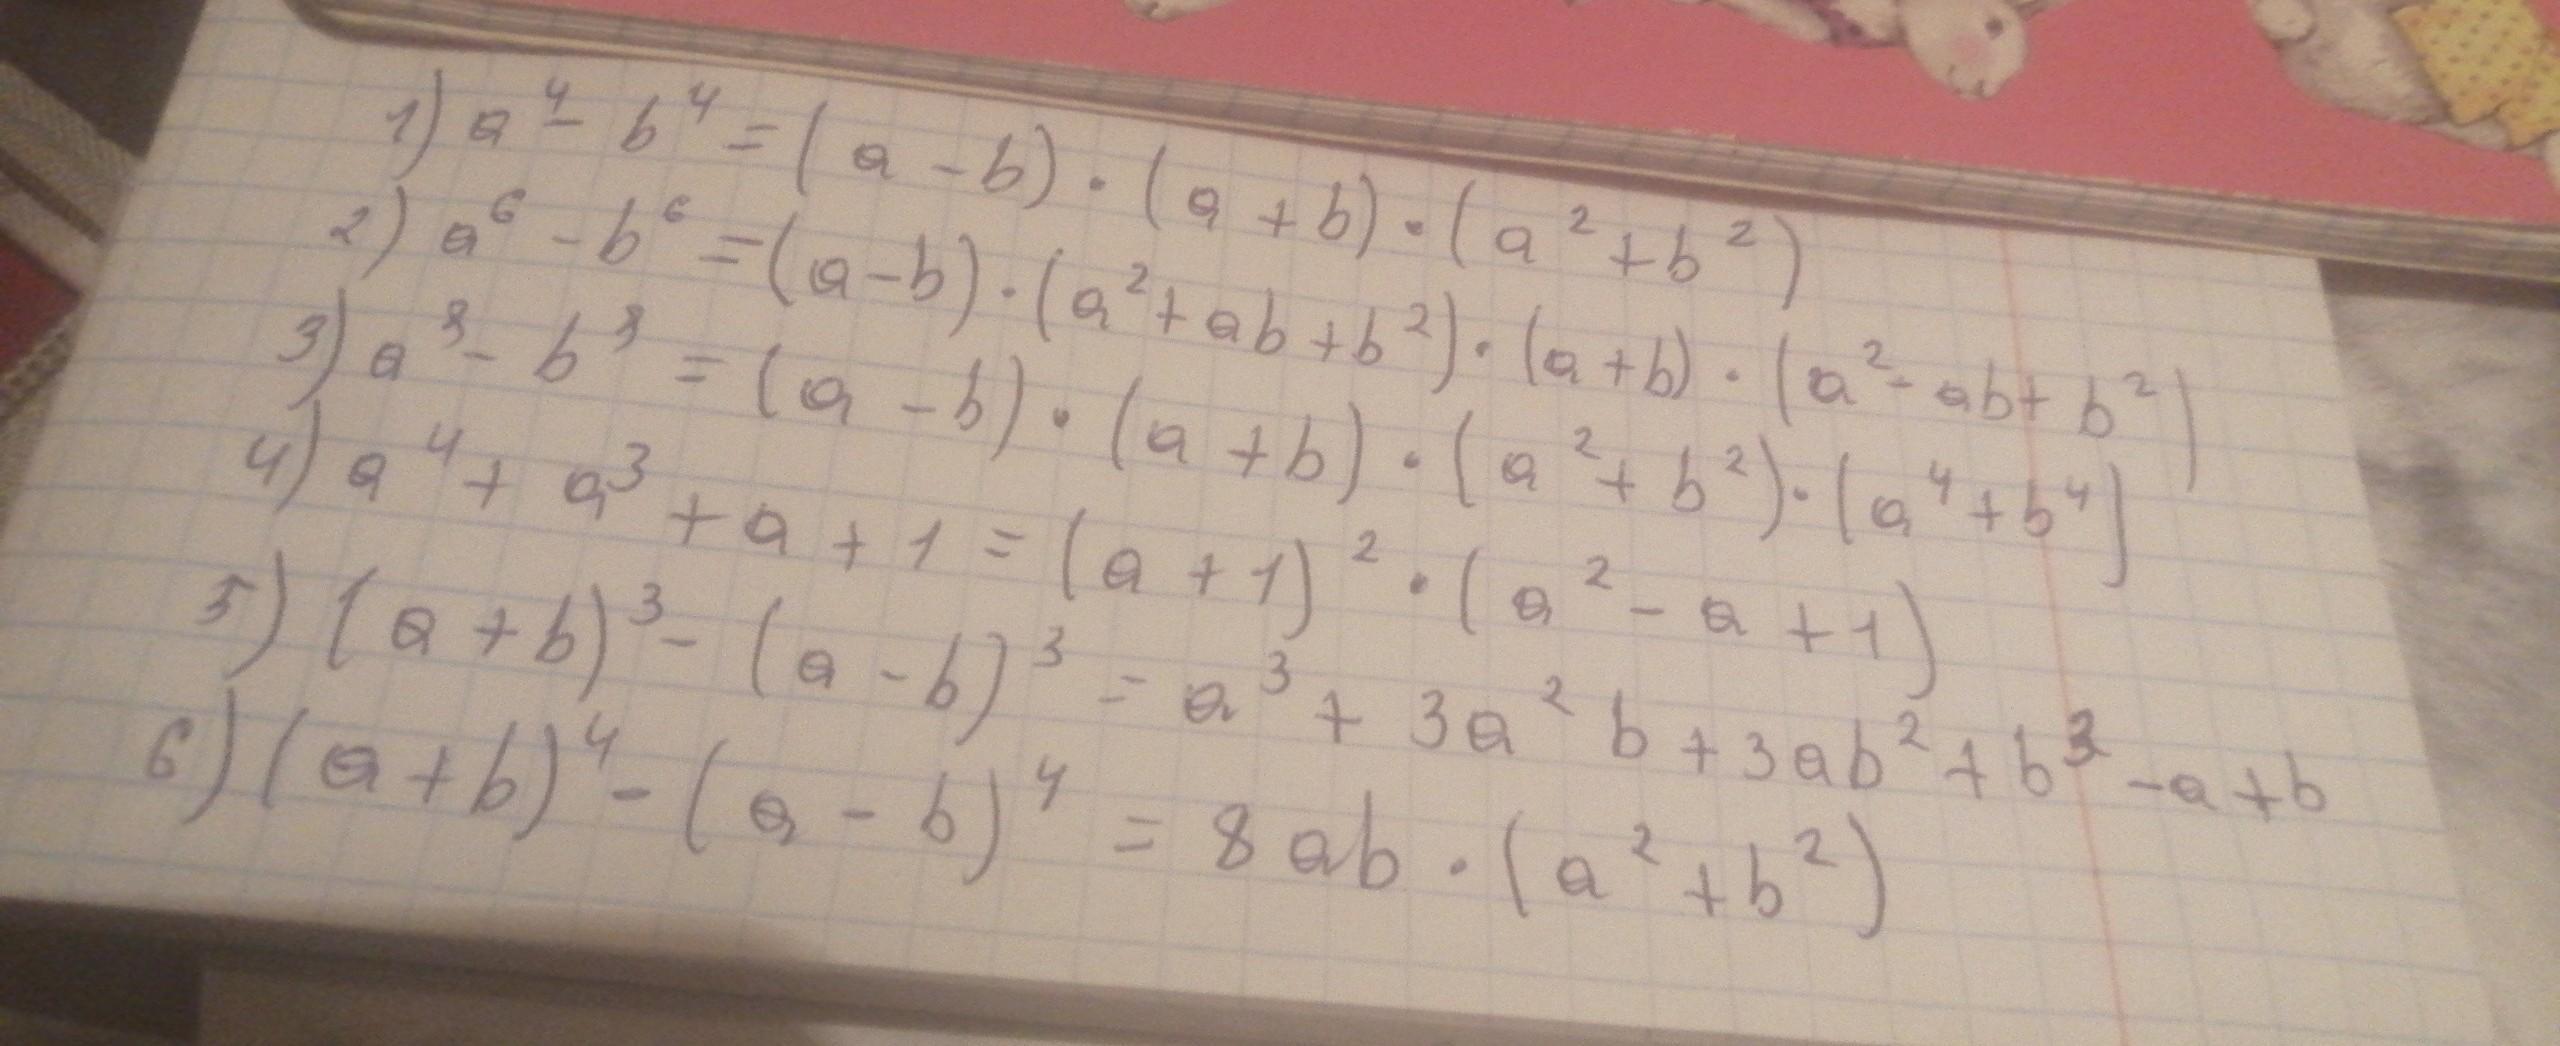 1) a⁴ - b⁴ = (a - b) · (a + b) · (a² + b²)
2) a⁶ - b⁶ = (a - b) · (a² + ab + b²) · (a + b) · (a² - ab + b²)
3) a⁸ - b⁸ = (a - b) · (a + b) · (a² + b²) · (a⁴ + b⁴)
4) a⁴ + a³ + a + 1 = (a + 1)² · (a² - a + 1)
5) (a + b)³ - (a - b)³ = a³ + 3a²b + 3ab² + b³ - a + b
6) (a + b)⁴ - (a - b)⁴ = 8ab · (a² + b²)